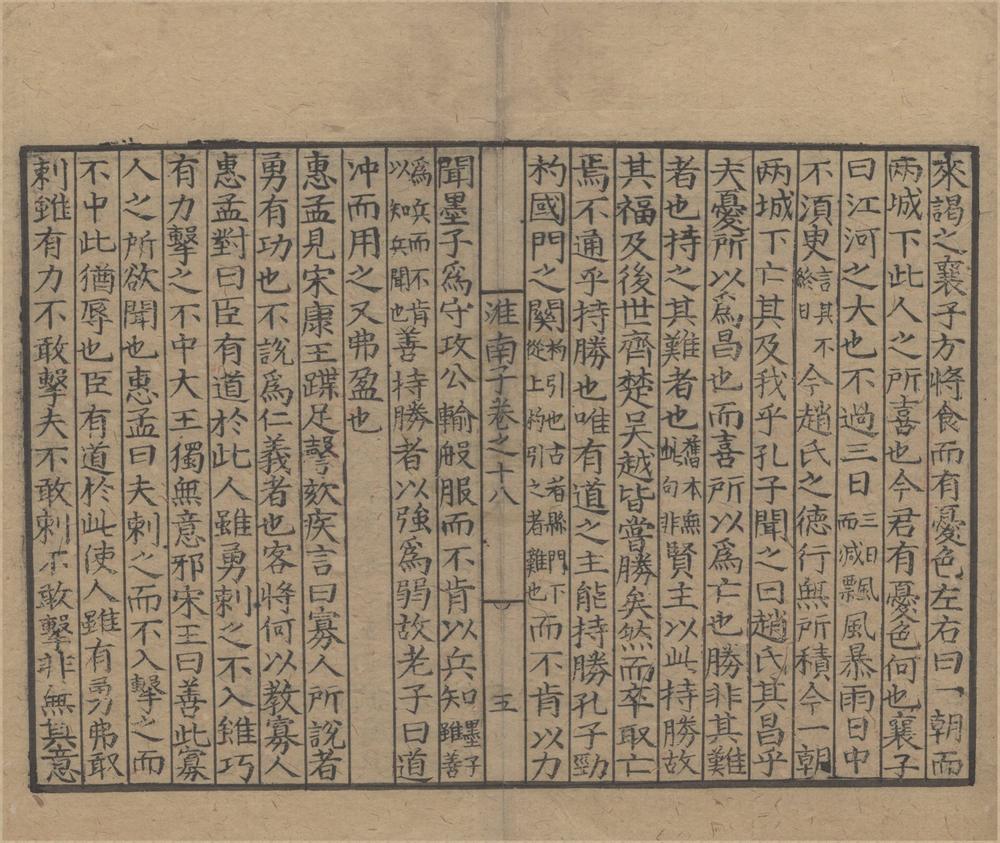 來謁之襄子方將食而有憂色左右曰一朝而
兩城下此人之所喜也今君有憂色何也襄子
曰江河之大也不過三日三日而減飄風暴雨日中
不湏臾言其不終日今趙氏之徳行無所積今一朝
两城下亡其及我乎孔子聞之曰趙氏其昌乎
夫憂所以為昌也而喜所以為亡也勝非其難
者也持之其難者也舊本無此句非賢主以此持勝故
其福及後世齊楚吳越皆嘗勝矣然而卒取亡
焉不通乎持勝也唯有道之主能持勝孔子勁
杓國門之關杓引也古者縣門下從上杓引之者難也而不肯以力
淮南子卷之十八
五
聞墨子為守攻公輸般服而不肯以兵知墨子雖善
為兵而不肯以知兵聞也善持勝者以強為弱故老子曰道
冲而用之又弗盈也
惠孟見宋康王蹀足謦欬疾言曰寡人所說者
勇有功也不說為仁義者也客將何以教寡人
惠孟對曰臣有道於此人雖勇刺之不入雖巧
有力擊之不中大王獨無意邪宋王曰善此寡
人之所欲聞也惠孟曰夫刺之而不入擊之而
不中此猶辱也臣有道於此使人雖有勇弗敢
刺雖有力不敢擊夫不敢刺不敢擊非無其意